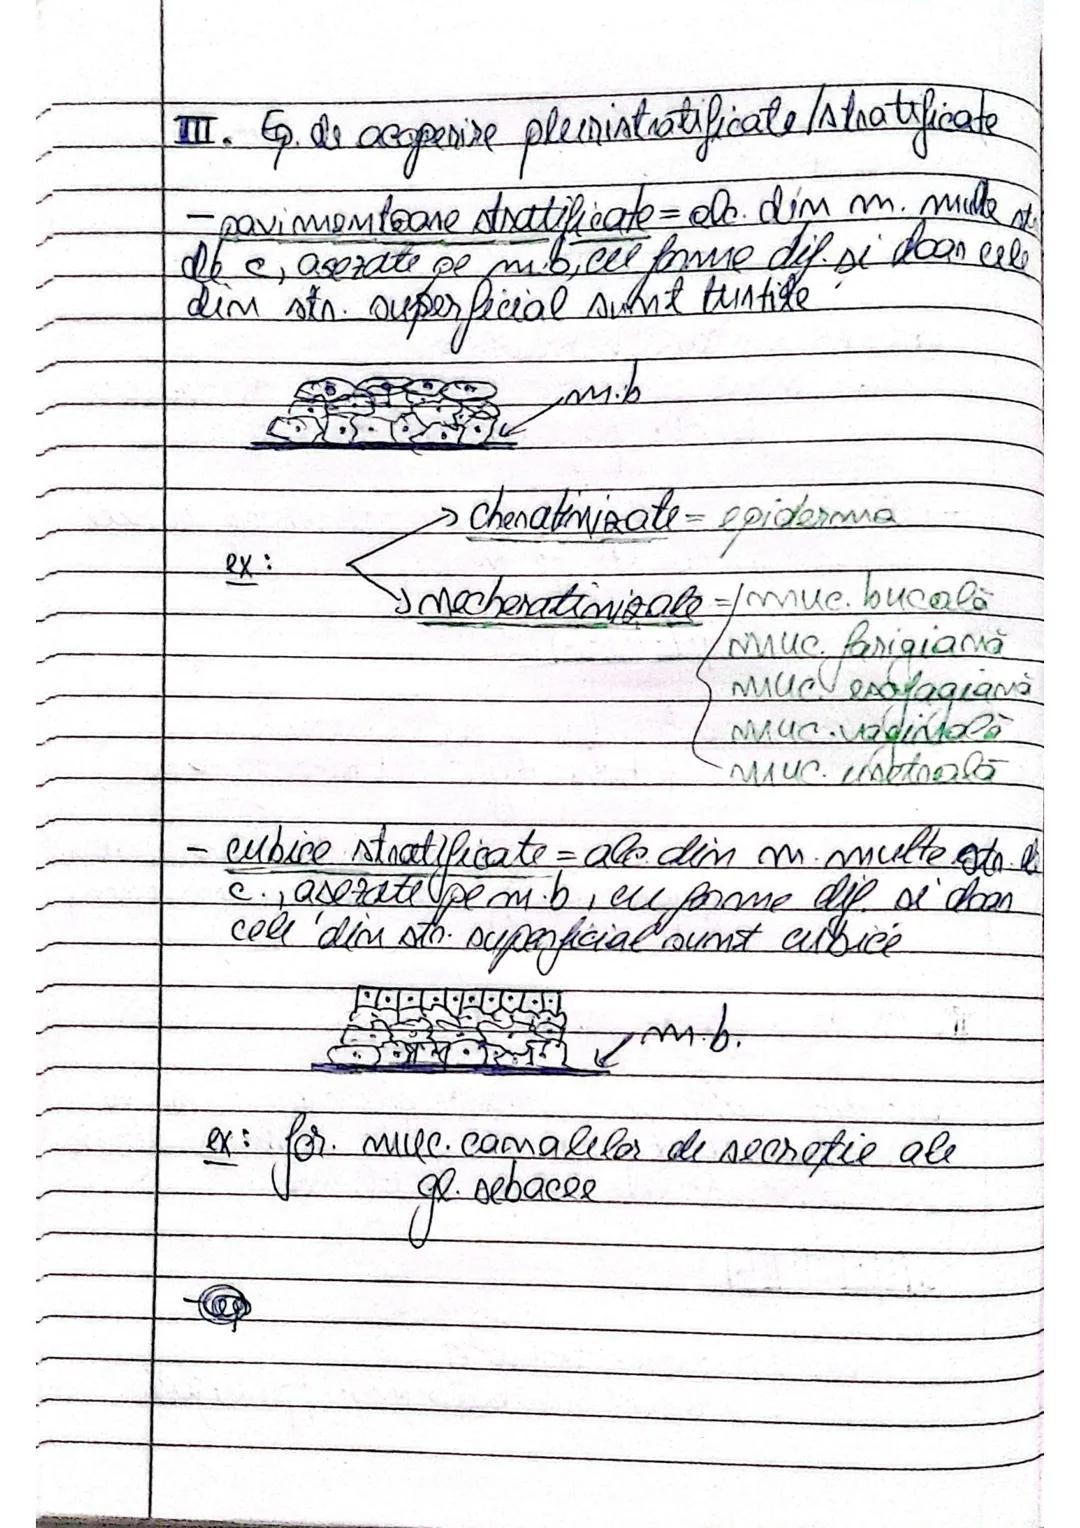 III. Ep. de acoperire pluristratificate/stratificate
- pavimentoase stratificate = alc. din m. multe str.
de c, asezate pe m.b, cu forme dif. si doar cele
din str. superficial sunt turtite
m.b
→ cheratinizate = epiderma
ex:
→ necheratinizate = muc. bucală
muc. farigiană
muc. esofagiană
muc. vaginală
muc.
- cubice stratificate = alc. din m. multe str. d
c., asezate pe m.b, cu forme dif. si doar
cele din str. superficial sunt cubice
m.b.
ex: for. muc. canalelor de secreție ale
gl. sebacee